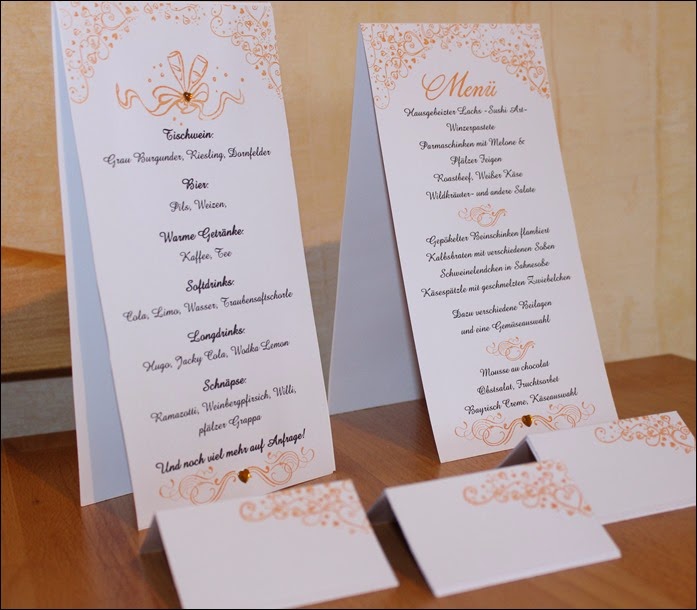 Tischwein:
Grau Burgunder, Riesling, Dornfelder
Bier:
Pils, Weizen,
Warme Getränke:
Kaffee, Tee
Softdrinks:
Cola, Limo, Wasser, Traubensaftschorle
Longdrinks:
Hugo, Jacky Cola, Wodka Lemon
Schnäpse:
Ramazotti, Weinbergpfirsich, Willi,
pfälzer Grappa
Und noch viel mehr auf Anfrage!
Menü
Hausgebeizter Lachs -Sushi Art-
Winzerpastete
Parmaschinken mit Melone &
Pfälzer Feigen
Roastbeef, Weißer Käse
Wildkräuter- und andere Salate
Gepökelter Beinschinken flambiert
Kalbsbraten mit verschiedenen Soßen
Schweinelendchen in Sahnesoße
Käsespätzle mit geschmelzten Zwiebelchen
Dazu verschiedene Beilagen
und eine Gemüseauswahl
Mousse au chocolat
Obstsalat, Fruchtsorbet
Bayrisch Creme, Käseauswahl